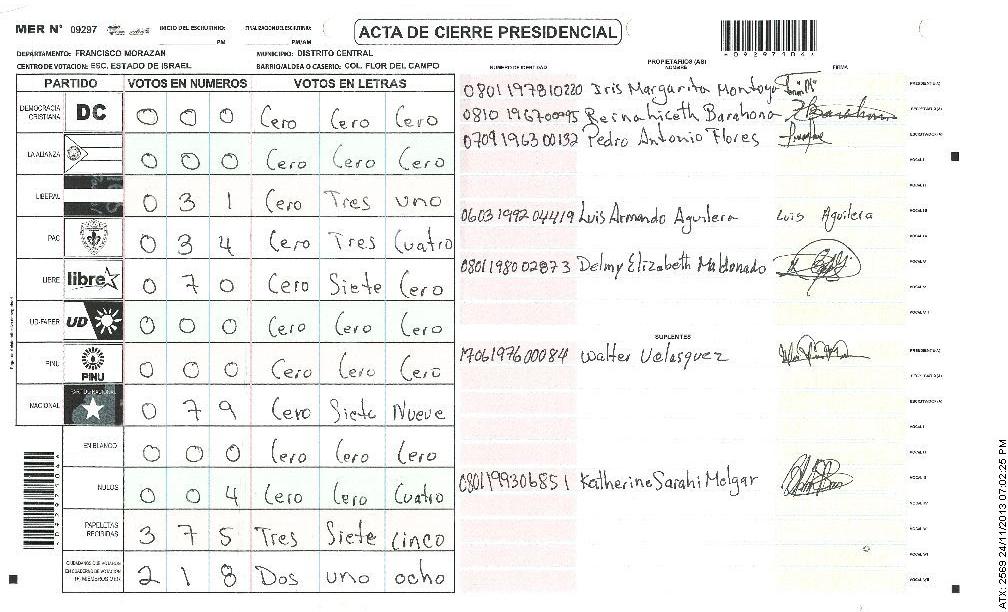 MER N° 09297 INICIO DEL ESCRUTINIO: PM FINALIZACION DEL ESCRUTINIO: PM/AM
ACTA DE CIERRE PRESIDENCIAL
*09297104*
DEPARTAMENTO: FRANCISCO MORAZAN MUNICIPIO: DISTRITO CENTRAL
CENTRO DE VOTACION: ESC. ESTADO DE ISRAEL BARRIO/ALDEA O CASERIO: COL. FLOR DEL CAMPO
PARTIDO VOTOS EN NUMEROS VOTOS EN LETRAS
DEMOCRACIA CRISTIANA DC 0 0 0 Cero Cero Cero
LA ALIANZA 0 0 0 Cero Cero Cero
LIBERAL 0 3 1 Cero Tres uno
PAC 0 3 4 Cero Tres Cuatro
LIBRE libre 0 7 0 Cero Siete Cero
UD-FAPER UD 0 0 0 Cero Cero Cero
PINU PINU 0 0 0 Cero Cero Cero
NACIONAL PARTIDO NACIONAL 0 7 9 Cero Siete Nueve
EN BLANCO 0 0 0 Cero Cero Cero
NULOS 0 0 4 Cero Cero Cuatro
PAPELETAS RECIBIDAS 3 7 5 Tres Siete Cinco
CIUDADANOS QUE VOTARON EN CUADERNO DE VOTACION 2 1 8 Dos uno ocho
NUMERO DE IDENTIDAD PROPIETARIOS (AS) NOMBRE FIRMA
0801197810220 Iris Margarita Montoya PRESIDENTE(A)
0810 1967 00095 Bernahiceth Barahona SECRETARIO(A)
0709 1963 00132 Pedro Antonio Flores ESCRUTADOR(A)
VOCAL I
VOCAL II
0603 1992 04419 Luis Armando Aguilera Luis Aguilera VOCAL III
VOCAL IV
0801 1980 02873 Delmy Elizabeth Maldonado VOCAL V
VOCAL VI
VOCAL VII
SUPLENTES
1706197600084 Walter Velasquez PRESIDENTE(A)
SECRETARIO(A)
ESCRUTADOR(A)
VOCAL I
VOCAL II
0801199306851 Katherine Sarahi Melgar VOCAL III
VOCAL IV
VOCAL V
VOCAL VI
VOCAL VII
*09297104*
ATX: 2569 24/11/2013 07:02:25 PM